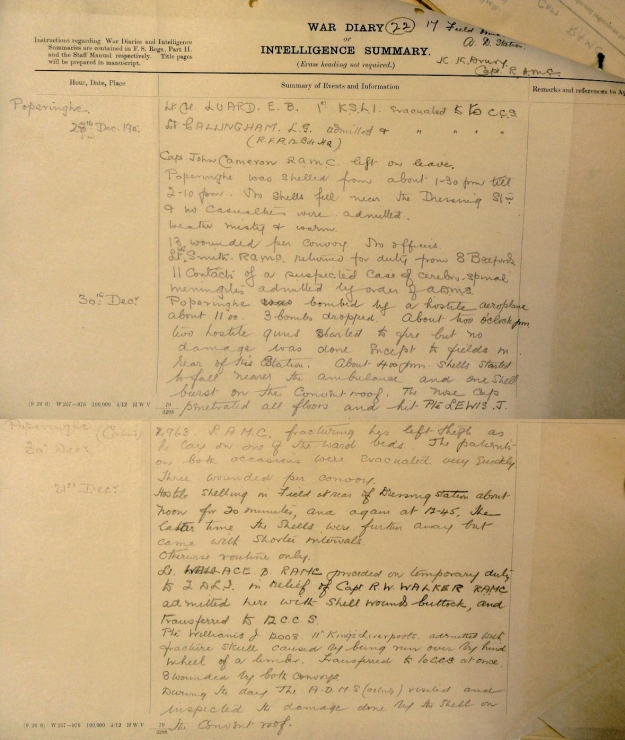 WAR DIARY (22) 17 Field
or A. D. Station
INTELLIGENCE SUMMARY.
(Erase heading not required.)
Capt. R.A.M.C.
Instructions regarding War Diaries and Intelligence
Summaries are contained in F. S. Regs., Part II.
and the Staff Manual respectively. Title pages
will be prepared in manuscript.
Hour, Date, Place
Summary of Events and Information
Remarks and references to Ap
Poperinghe
Lt Col LUARD. E. B. 1st K.S.L.I. evacuated to 10 C.C.S.
Dec.
Lt CALLINGHAM. L.G. admitted & " " " "
Capt John Cameron RAMC left on leave.
Poperinghe was shelled from about 1-30 pm till
2-10 pm. No shells fell near the Dressing Stn
& no casualties were admitted.
misty & warm.
13 wounded per convoy. No officers.
Lt. Smith. RAMC returned for duty from 8 Bedfords
11 Contacts of a suspected case of cerebro-spinal
meningitis admitted by order of ADMS
30th Decr
Poperinghe was bombed by a hostile aeroplane
about 11 00. 3 bombs dropped. About two o'clock pm
two hostile guns started to fire but no
damage was done except to fields in
rear of this Station. About 4.00 pm shells started
to fall nearer the ambulance and one shell
burst on the Convent roof. The nose cap
penetrated all floors and hit Pte LEWIS J.
(9 26 6) W 257—976 100,000 4/12 H W V 79/3298
Poperinghe
30 Decr
R.A.M.C. fracturing his left thigh as
he lay on one of the ward beds. The patients
on both occasions were evacuated very quickly
Three wounded per convoy.
31st Decr
Hostile shelling in Field at rear of Dressing station about
noon for 20 minutes, and again at 12-45. The
latter time the shells were further away but
came with shorter intervals
Otherwise routine only.
Lt. WALLACE D RAMC proceeded on temporary duty
to 2 D.L.I. in relief of Capt R.W. WALKER RAMC
admitted here with shell wounds buttock, and
transferred to 12 C C S.
Pte Williams J. 11th King's Liverpools. admitted with
fracture skull caused by being run over by hind
wheel of a limber. Transferred to 10 CCS at once
8 wounded by both convoys
During the day the A.D.M.S (acting) visited and
inspected the damage done by the shell on
the Convent roof.
(9 26 6) W 257—976 100,000 4/12 H W V 79/3298